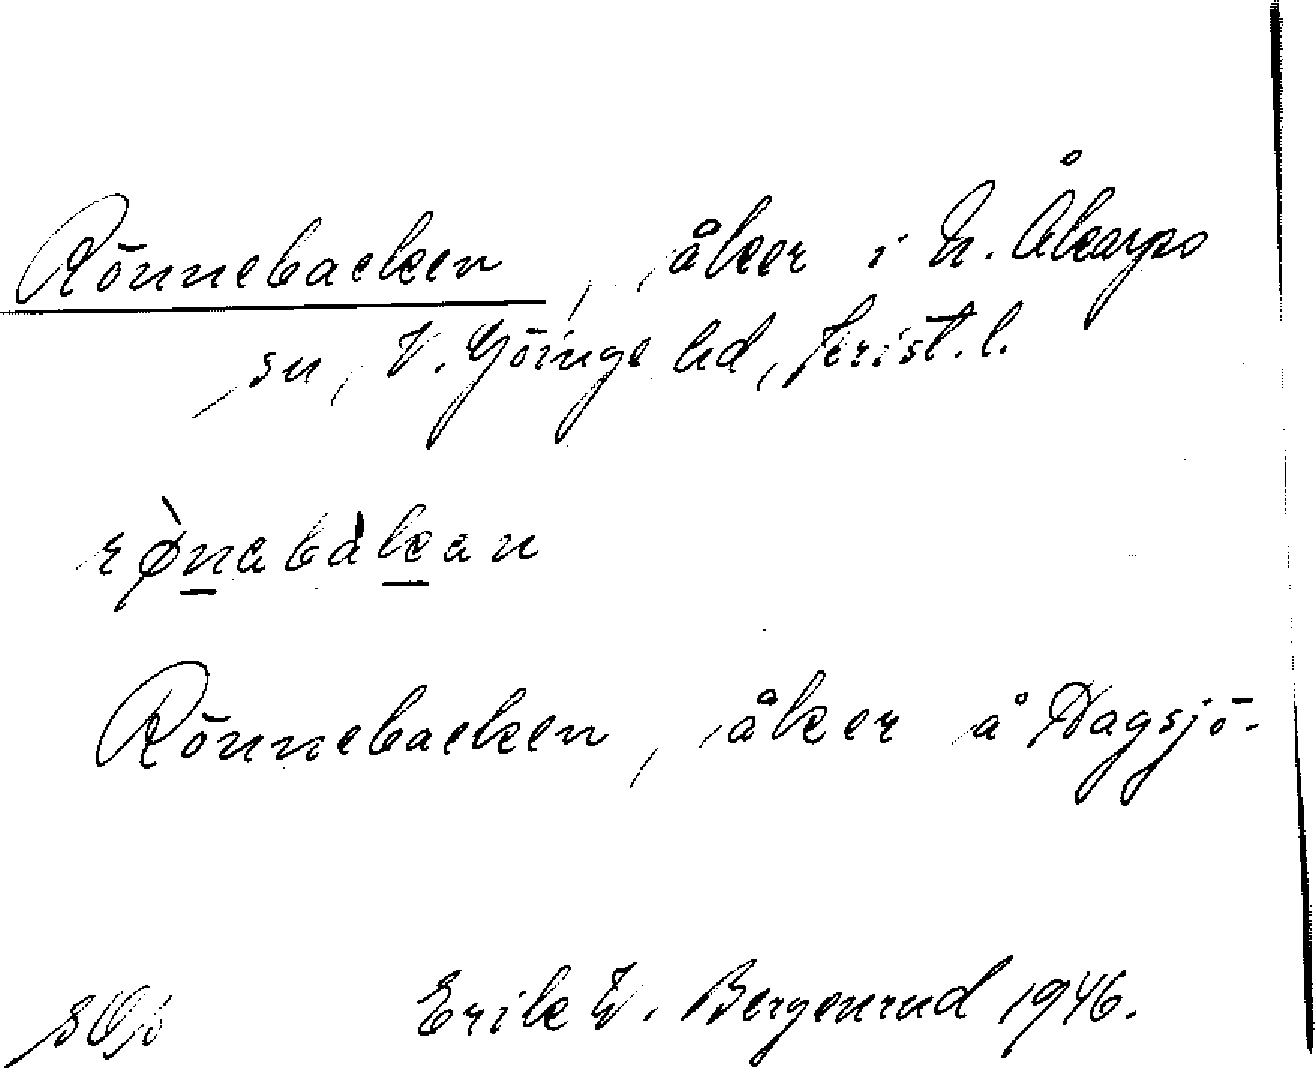 Rönnebacken, åker i N. Åkarps
sn, V. Göinge hd, Krist. l.
rø̀nabàkan
Rönnebacken, åker å Dagsjö-
Erik W. Bergenrud 1946.